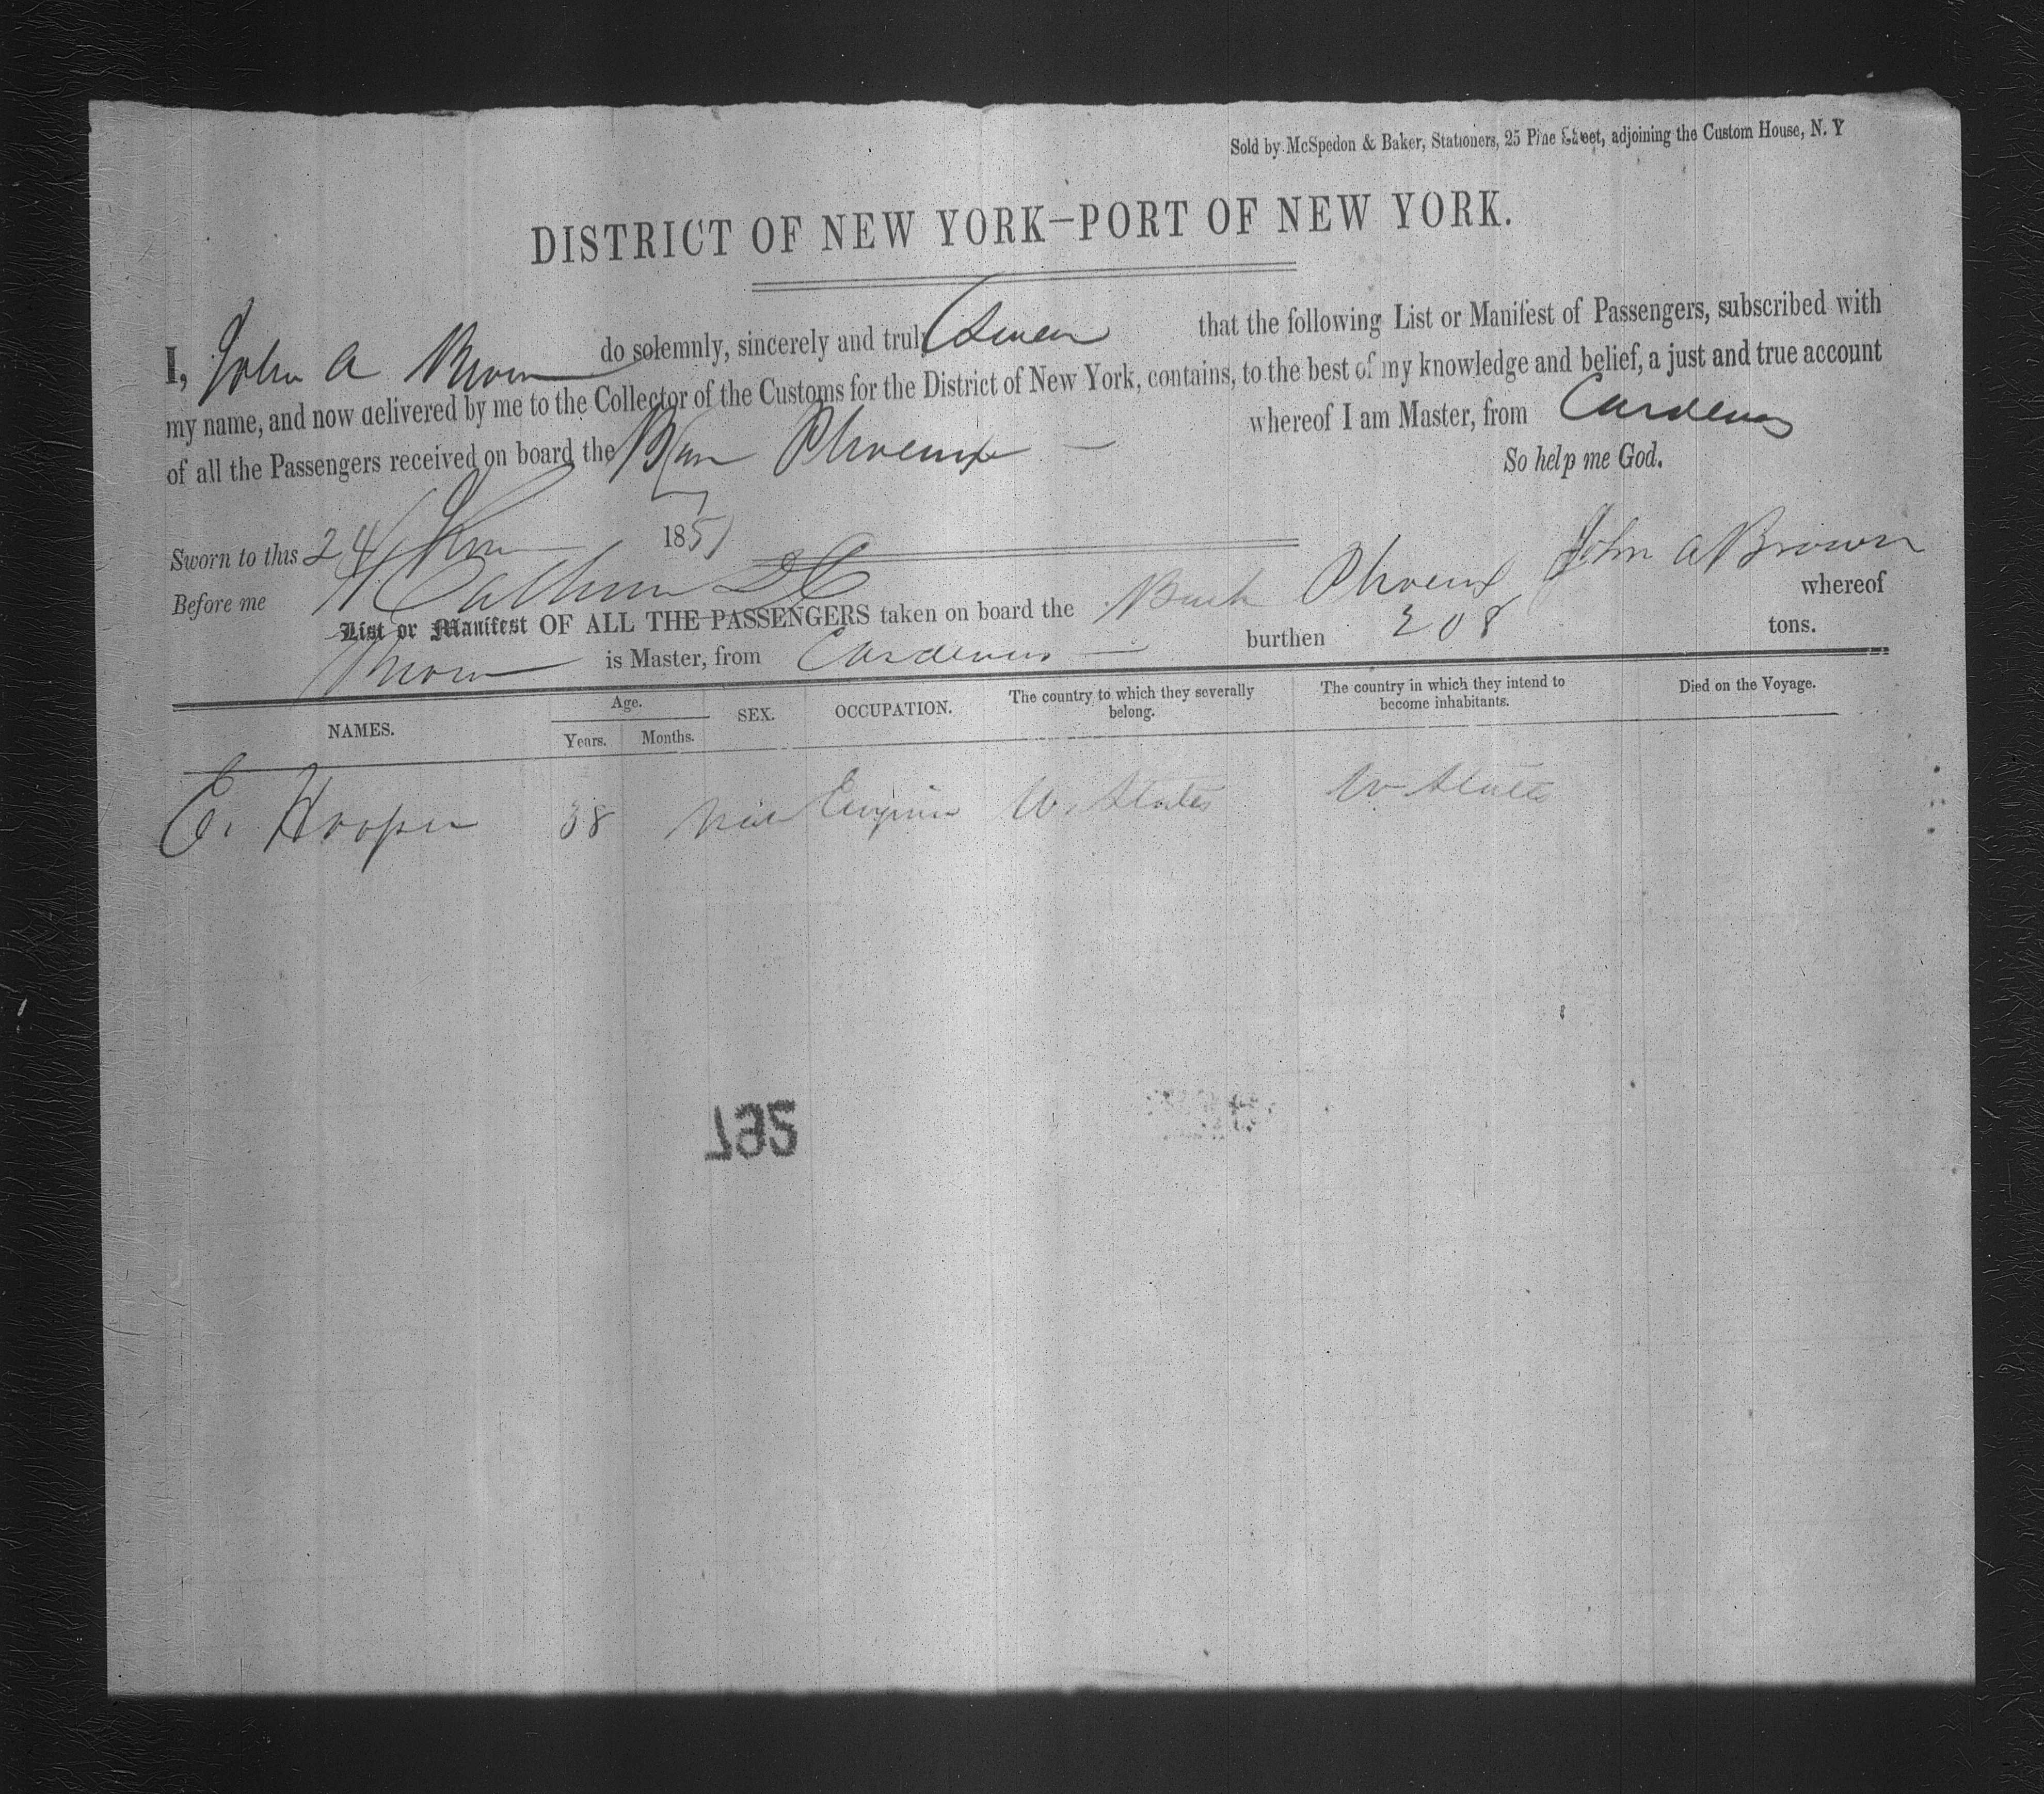 Sold by McSpedon & Baker, Stationers, 25 Pine Street, adjoining the Custom House, N. Y
DISTRICT OF NEW YORK—PORT OF NEW YORK.
I, John A Brown do solemnly, sincerely and truly Swear that the following List or Manifest of Passengers, subscribed with
my name, and now delivered by me to the Collector of the Customs for the District of New York, contains, to the best of my knowledge and belief, a just and true account
of all the Passengers received on board the Phoenix whereof I am Master, from Cardenas
So help me God.
Sworn to this 24 1851
John A Brown
Before me Calhoun DC
List or Manifest OF ALL THE PASSENGERS taken on board the Bark Phoenix whereof
Brown is Master, from Cardenas burthen 308 tons.
NAMES. Age. Years. Months. SEX. OCCUPATION. The country to which they severally belong. The country in which they intend to become inhabitants. Died on the Voyage.
E. Hooper 38 Male Engineer U. States U States
792